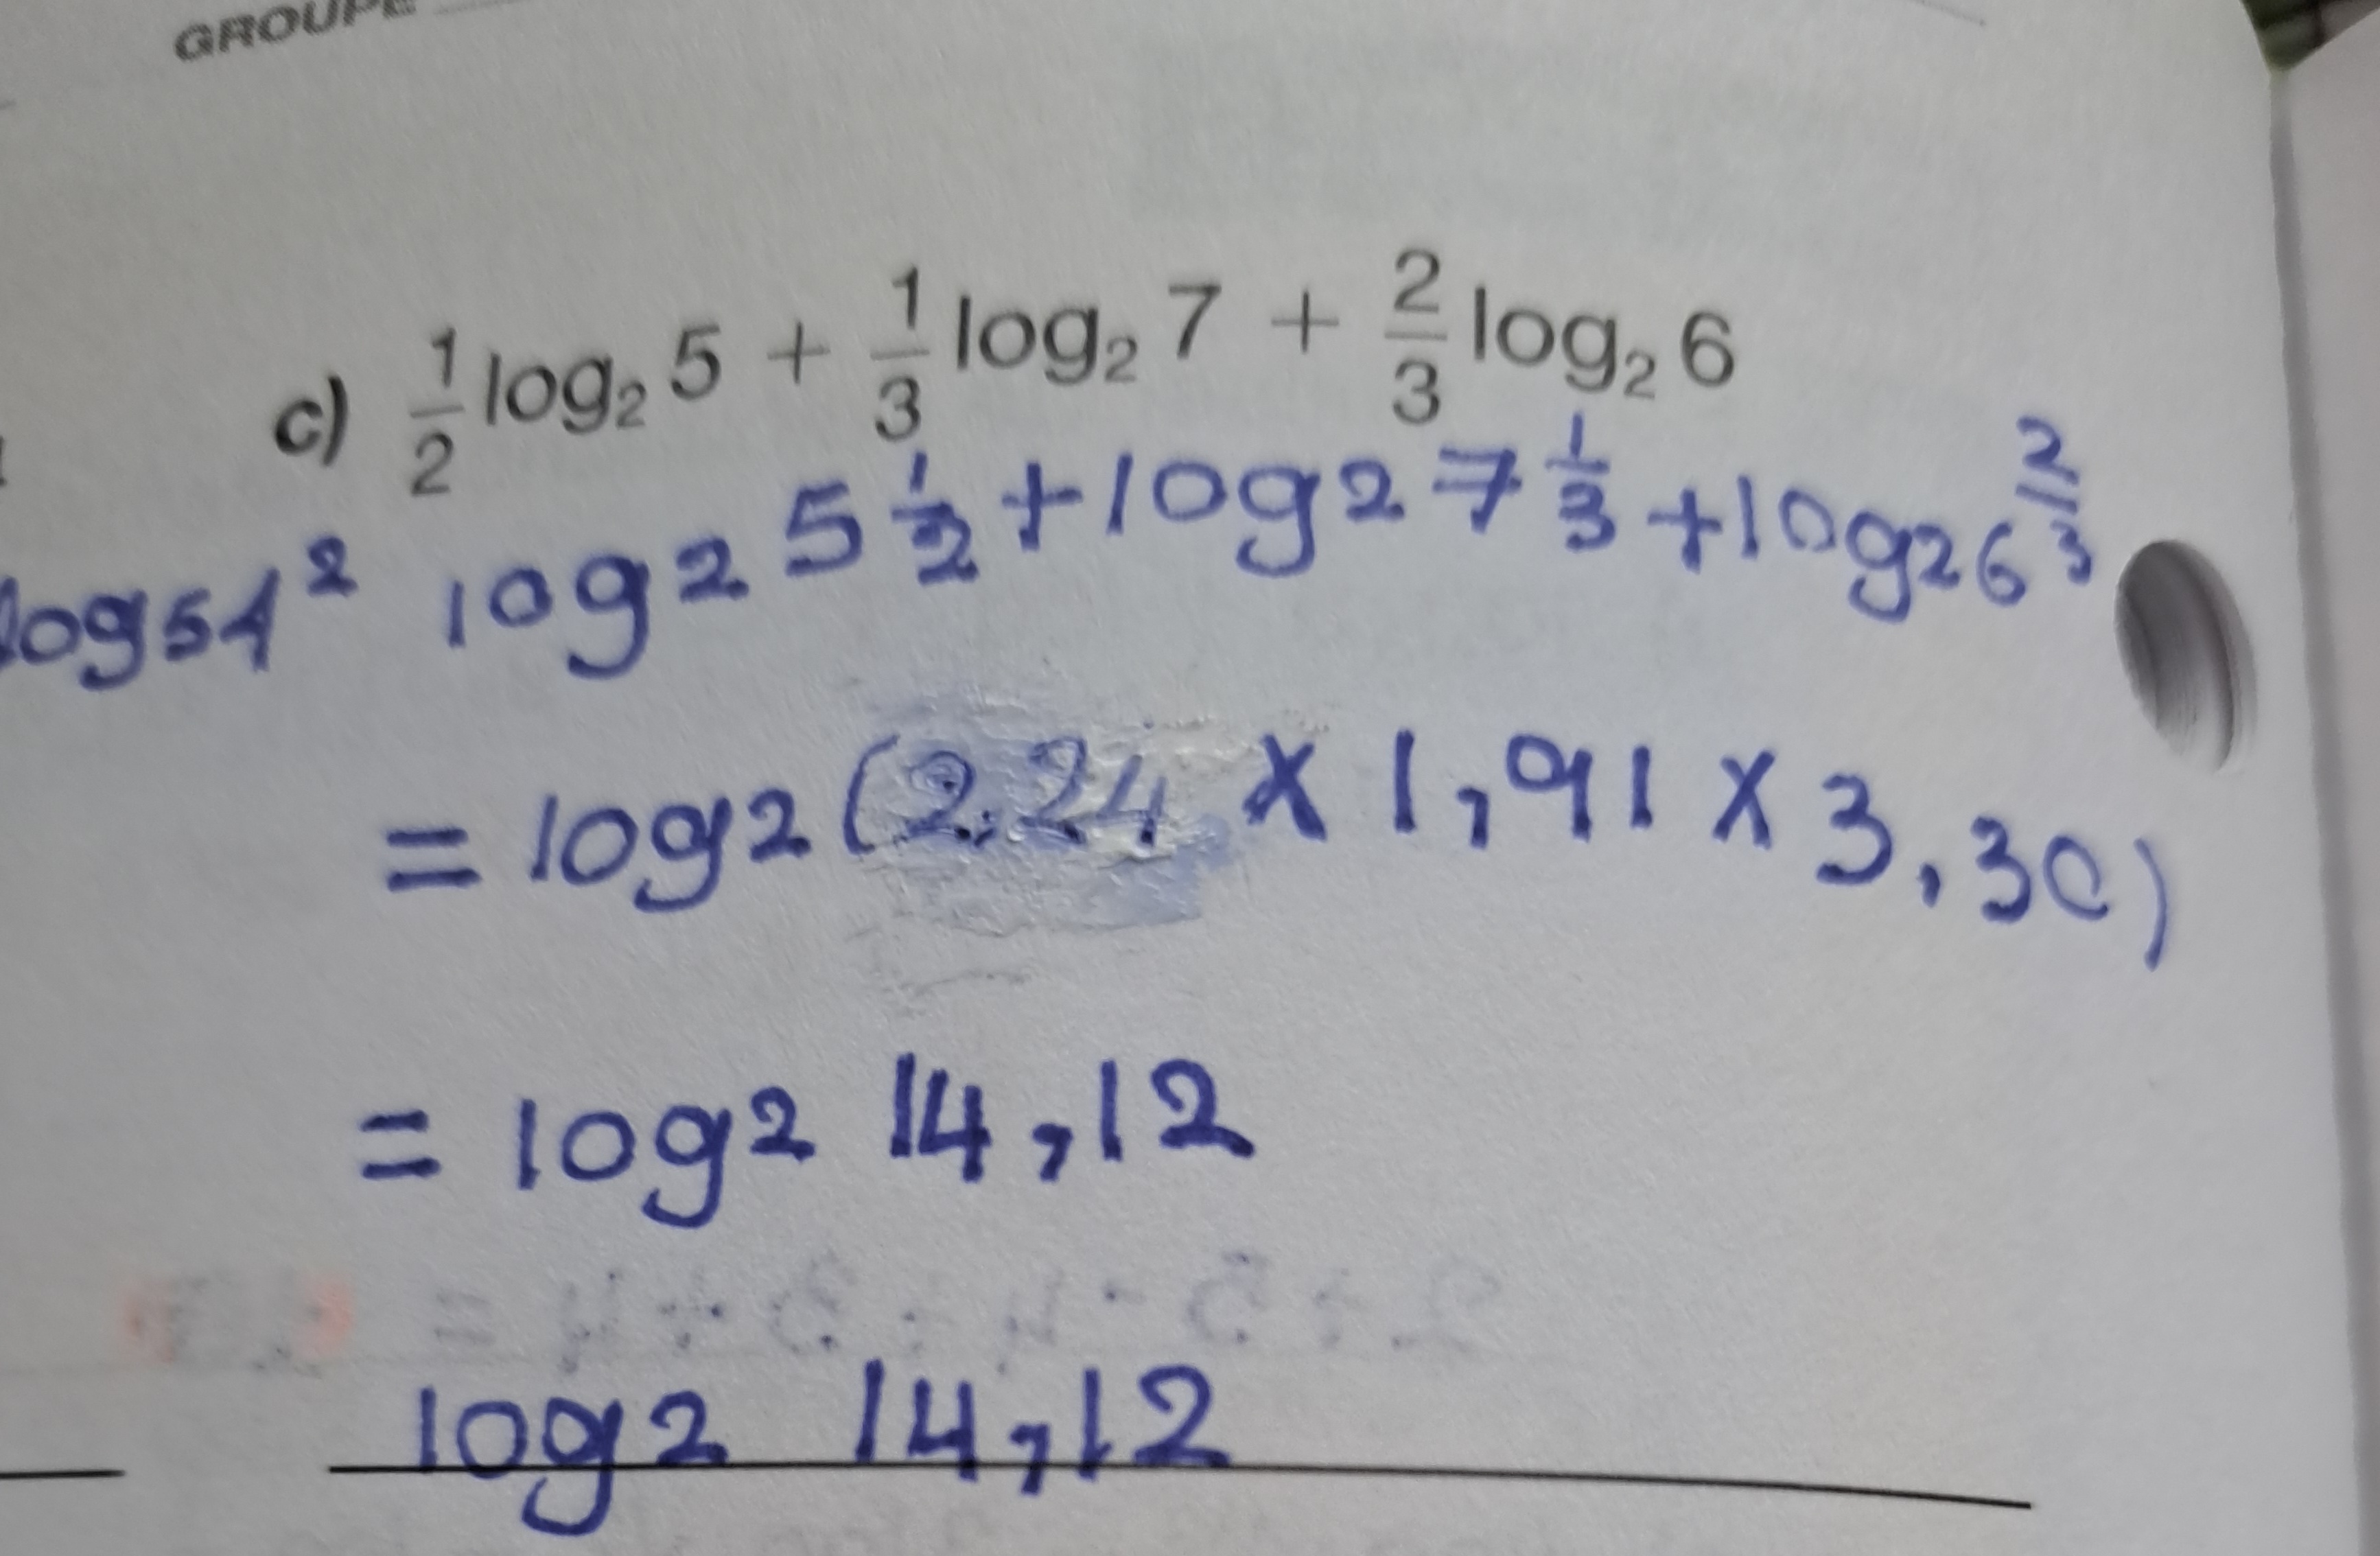 GROUPE
c) 1/2 log₂ 5 + 1/3 log₂ 7 + 2/3 log₂ 6
log₅4² log₂ 5^1/2 + log₂ 7^1/3 + log₂ 6^2/3
= log₂ (2,24 × 1,91 × 3,30)
= log₂ 14,12
log₂ 14,12